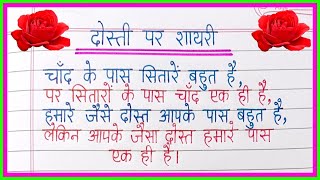 दोस्ती पर शायरी
चाँद के पास सितारें बहुत है,
पर सितारों के पास चाँद एक ही है,
हमारे जैसे दोस्त आपके पास बहुत है,
लेकिन आपके जैसा दोस्त हमारे पास
एक ही है।